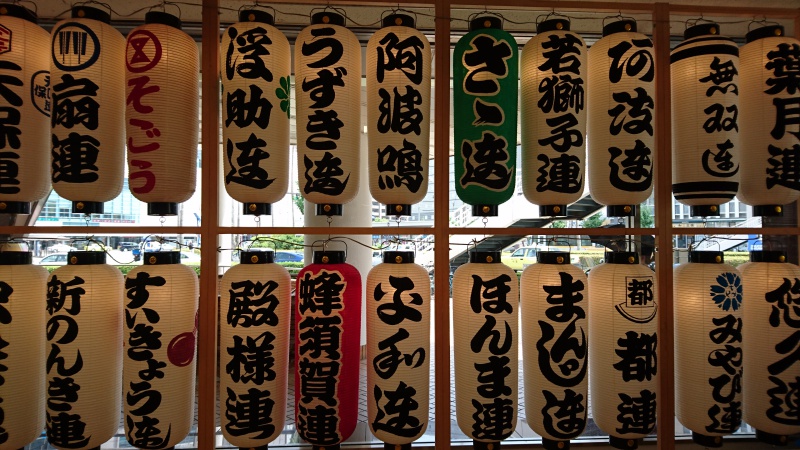 天保
扇連
そごう
浮助連
うずき連
阿波鳴
さゝ連
若獅子連
阿波連
無双連
葉月連
新のんき連
すいきょう連
殿様連
蜂須賀連
平和連
ほんま連
まんじ連
都
都連
みやび連
悠久連